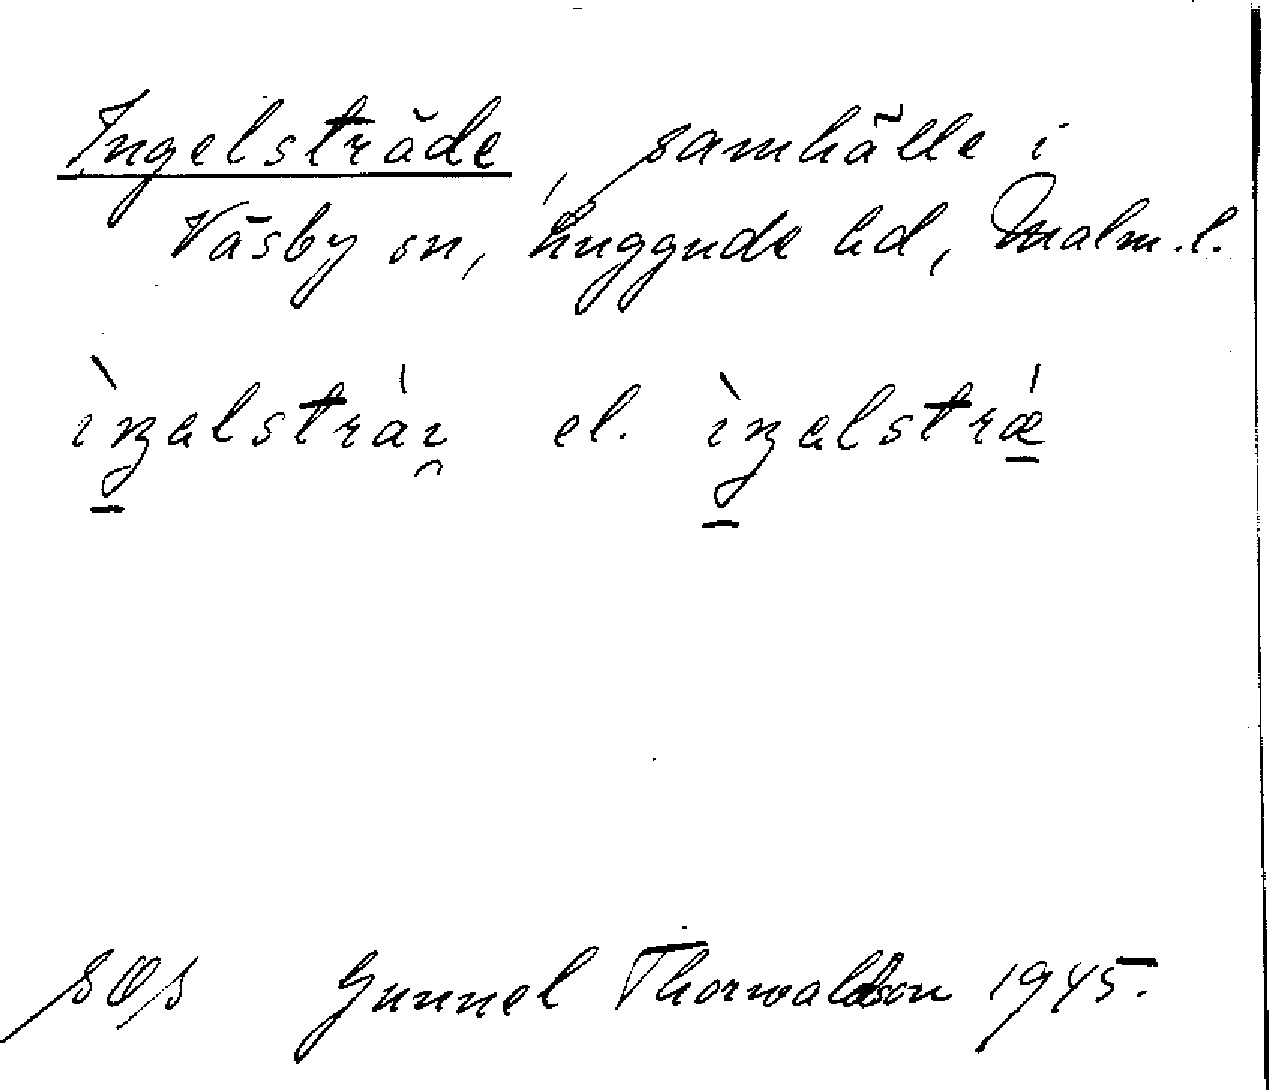 Ingelsträde, samhälle i
Väsby sn, Luggude hd, Malm. l.
ìŋəlstráı̯ el. ìŋəlstrǽ
SOS Gunnel Thorwaldson 1945.